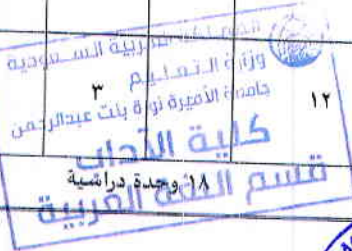 المملكة العربية السعودية
وزارة التعليم
جامعة الأميرة نورة بنت عبدالرحمن
كلية الآداب
قسم اللغة العربية
٣
١٢
١٨ وحدة دراسية